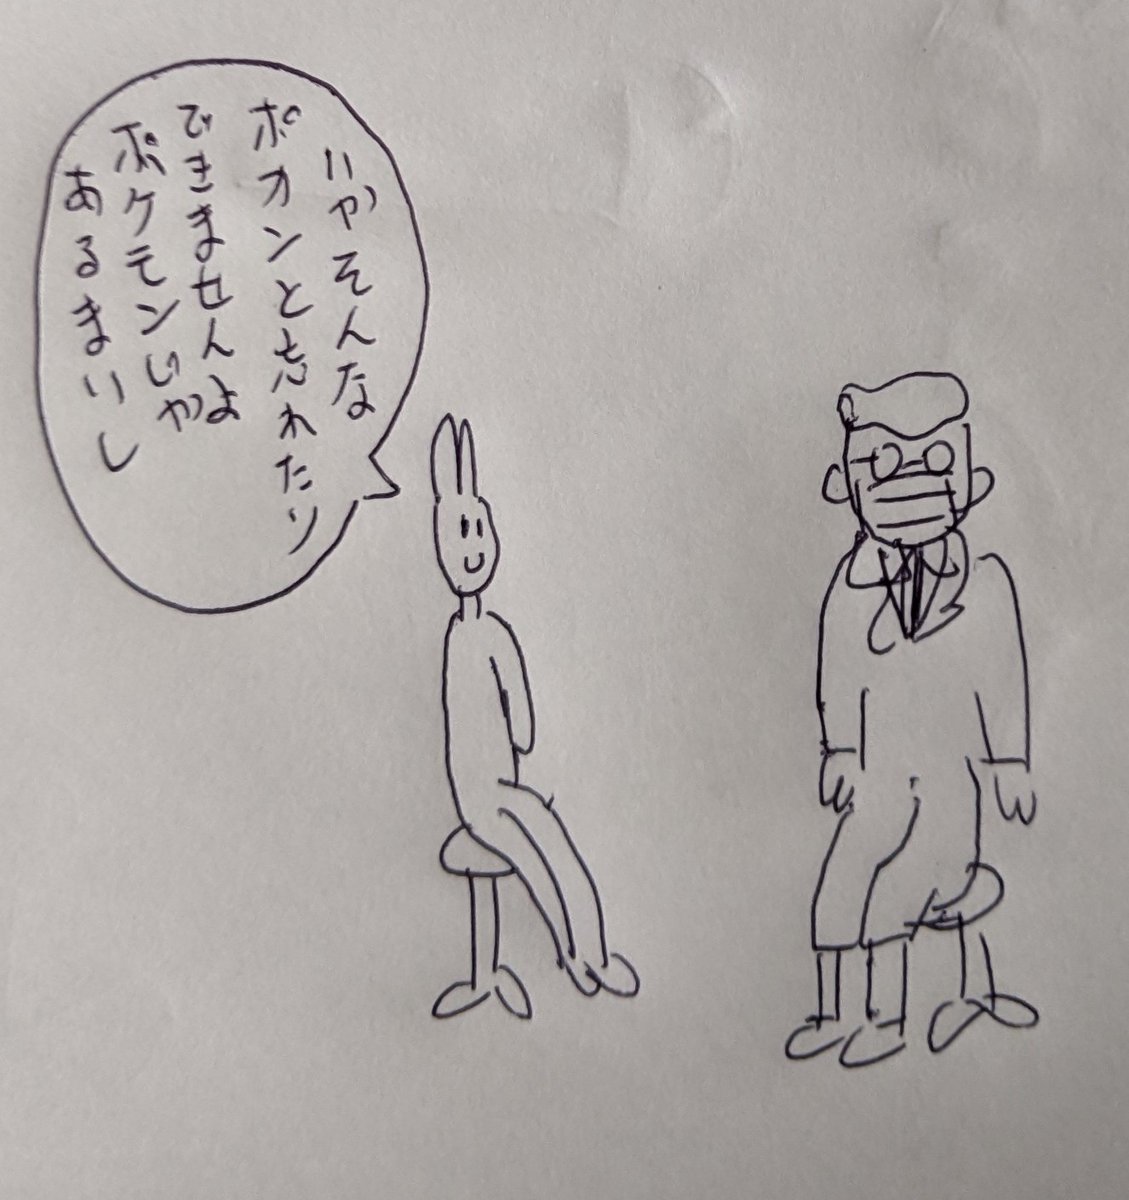 いやそんな
ポカンと忘れたり
できませんよ
ポケモンじゃ
あるまいし